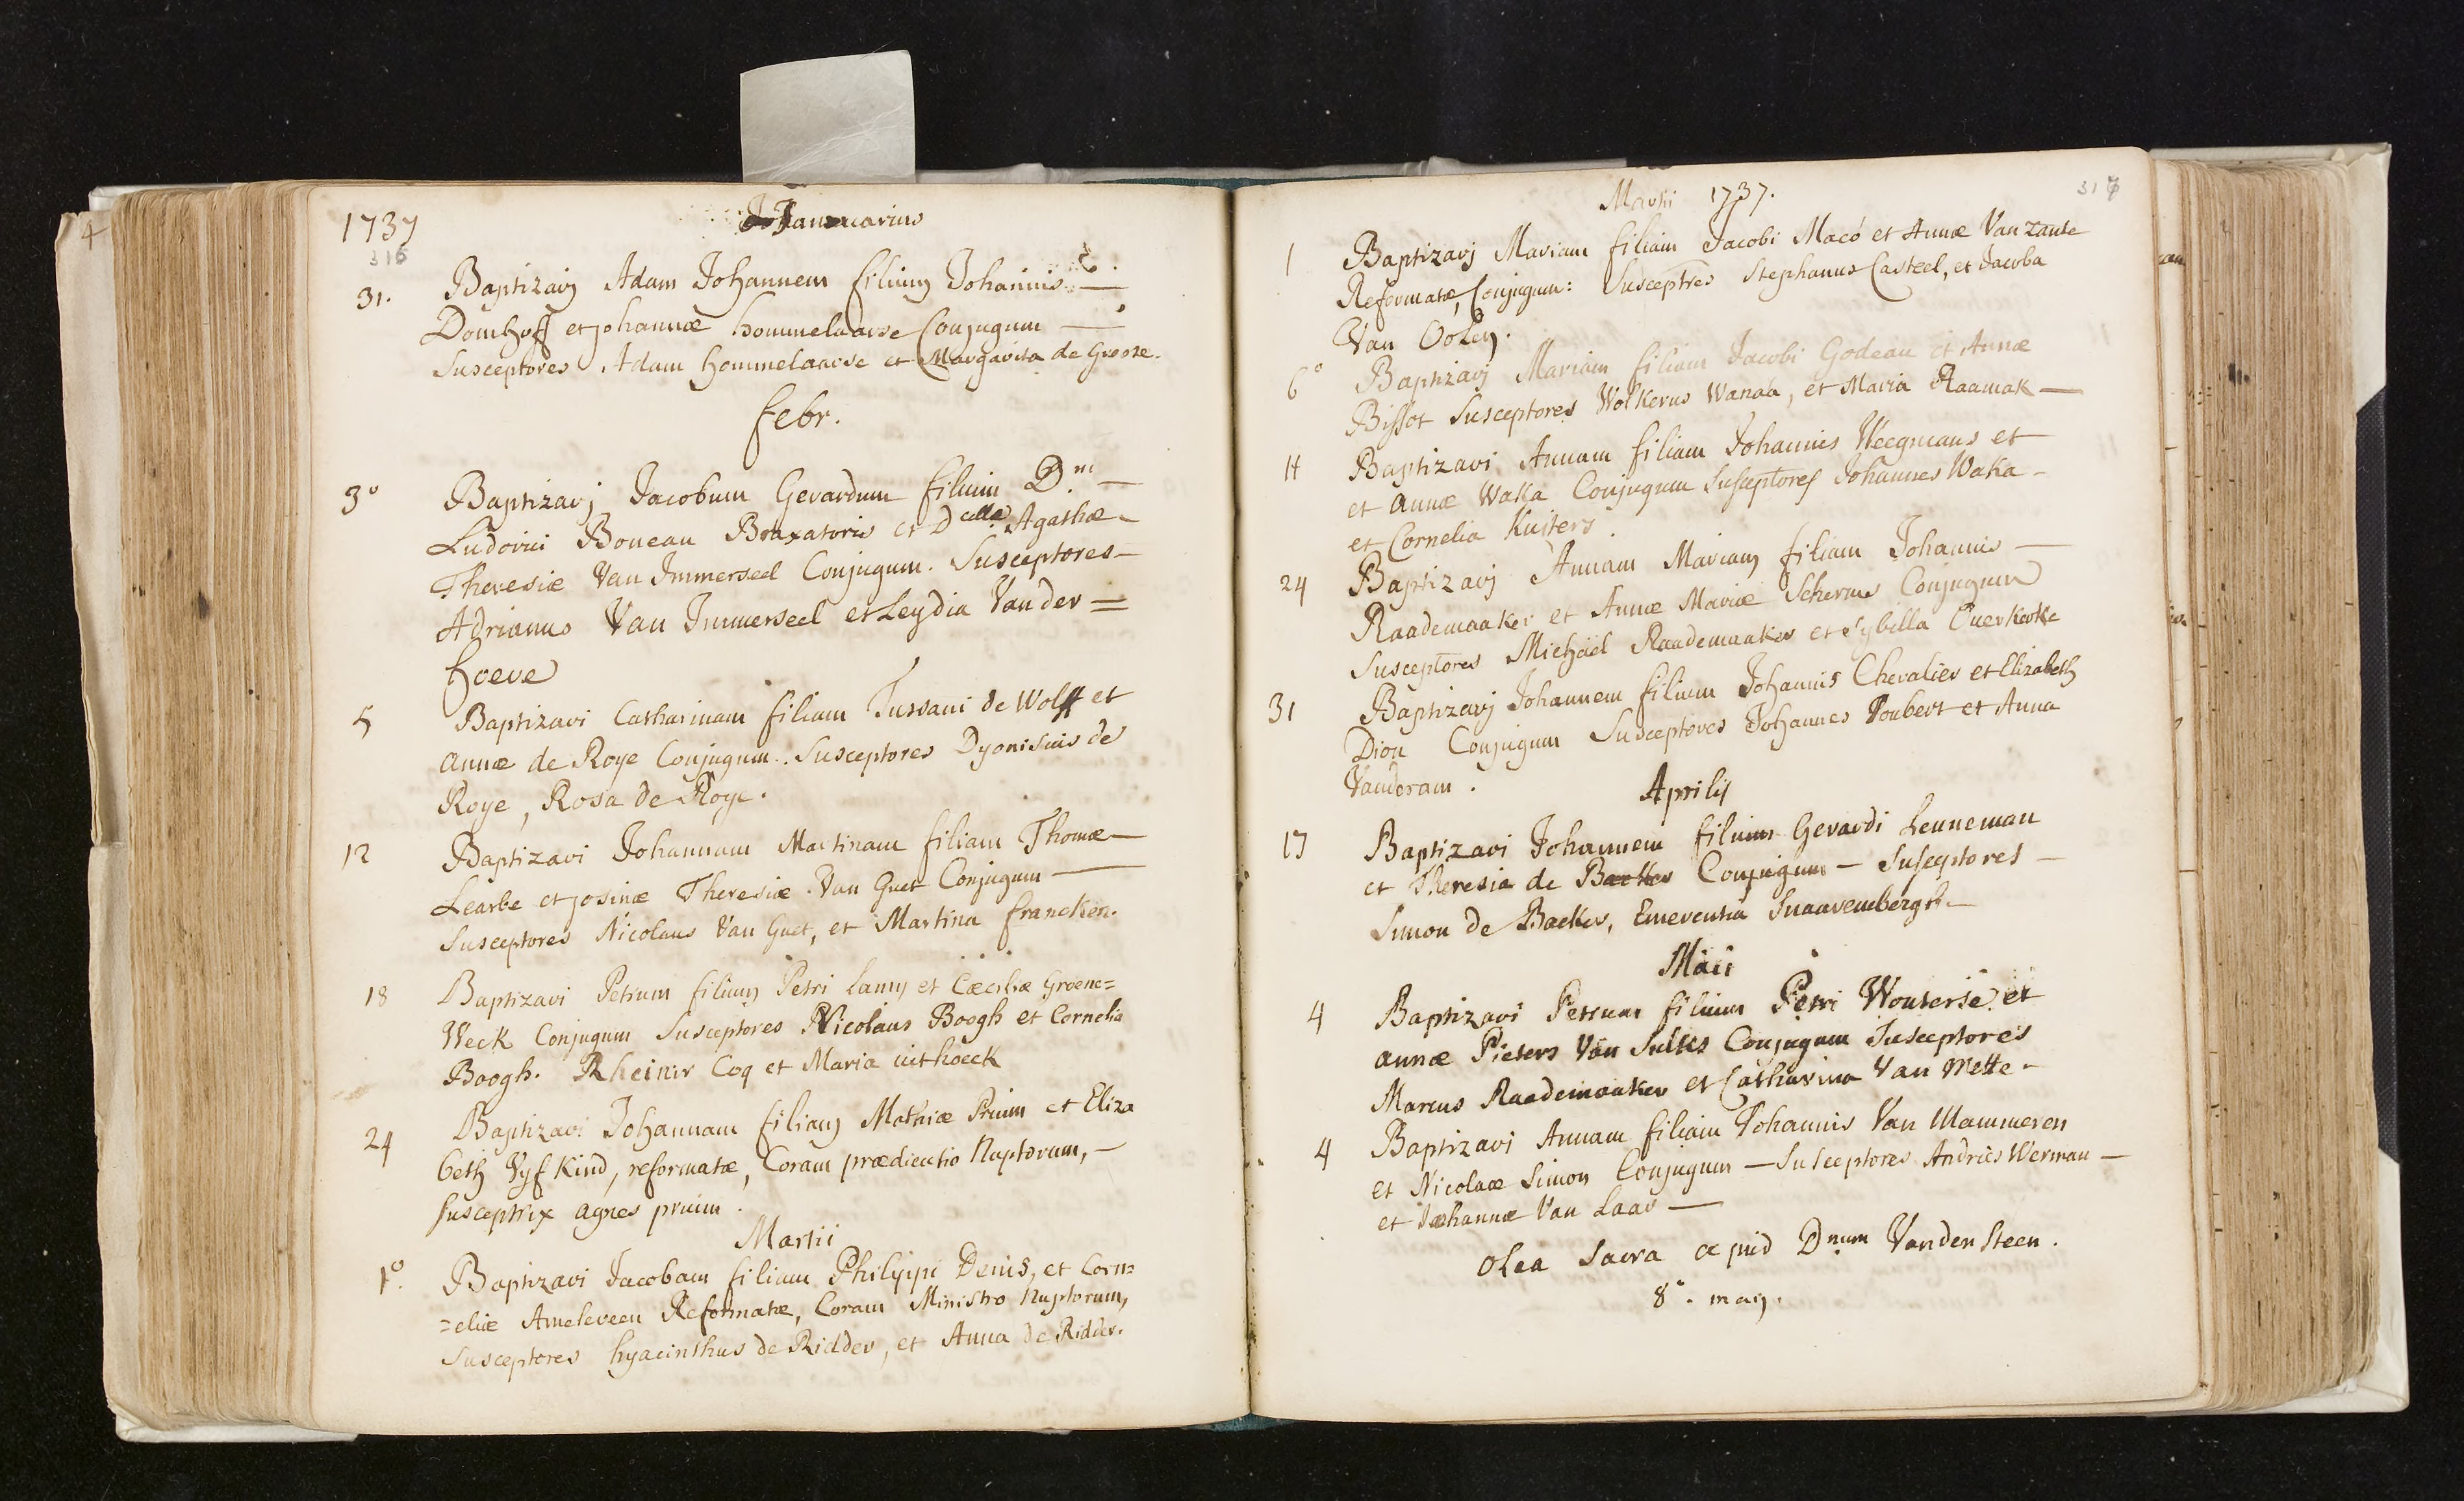 1737
316
Januarius
31. Baptizavj Adam Johannem filium Johannis
Domhoff et Johannæ hommelaarse Conjugum
Susceptores Adam hommelaarse et Margarita de Groote.
febr.
3º Baptizavj Jacobum Gerardum filium D.ni
Ludovici Boneau Braxatoris et Dcellæ Agathæ
Theresiæ Van Immerseel Conjugum. Susceptores
Adrianus Van Immerseel et Leydia Vander=
hoeve
5 Baptizavi Catharinam filiam Tussani de Wolff et
annæ de Roye Conjugum. Susceptores Dyonisius de
Roye, Rosa de Roye.
12 Baptizavi Johannam Martinam filiam Thomæ
Learbe et Josinæ Theresiæ Van Guet Conjugum
Susceptores Nicolaus Van Guet, et Martina francken.
18 Baptizavi Petrum filium Petri Lamy et Cæciliæ Groene=
Weck Conjugum Susceptores Nicolaus Boogh et Cornelia
Boogh. Rheinir Coq et Maria uithoeck
24 Baptizavi Johannam filiam Mathiæ Pruim et Eliza
beth Vyf Kind, reformatæ, Coram prædicantio Nuptorum,
susceptrix agnes pruim.
Martii
1º. Baptizavi Jacobam filiam Philippi Denis, et Corn=
=eliæ Ameleveen Reformatæ, Coram Ministro Nuptorum,
Susceptores hyacinthus de Ridder, et Anna de Ridder.
Martii 1737.
317
1 Baptizavj Mariam filiam Jacobi Macó et Annæ Van zante
Reformatæ, Conjugum: Susceptres Stephanus Casteel, et Jacoba
Van Ooley.
6º Baptizavj Mariam filiam Jacobi Godeau et Annæ
Bissot Susceptores Wolkerus Wanaa, et Maria Raamak
11 Baptizavi Annam filiam Johannis Weegmans et
et annæ Waka Conjugum Susceptores Johannes Waka
et Cornelia Kuiters
24 Baptizavj Annam Mariam filiam Johannis
Raademaaker et Annæ Mariæ Scherms Conjugum
Susceptores Michaël Raademaaker et Sybilla Ouerkerke
31 Baptizavj Johannem filium Johannis Chevalier et Elizabeth
Dion Conjugum Susceptores Johannes Joubert et Anna
Vanderam.
Aprilis
17 Baptizavi Johannem filium Gerardi Lenneman
et Theresia de Backer Conjugum - Susceptores
Simon de Backer, Emerentia Snaavembergh
Maii
4 Baptizavi Petrum filium Petri Wouterse et
annæ Pieters Van Sultes Conjugum Susceptores
Marcus Raademaaker et Catharina Van Mette
4 Baptizavi Annam filiam Johannis Van Mammeren
et Nicolaæ Simon Conjugum - Susceptores Andries Werman
et Johannæ Van Laar
olea sacra apud Dnum Vanden Steen.
8ª. maij.